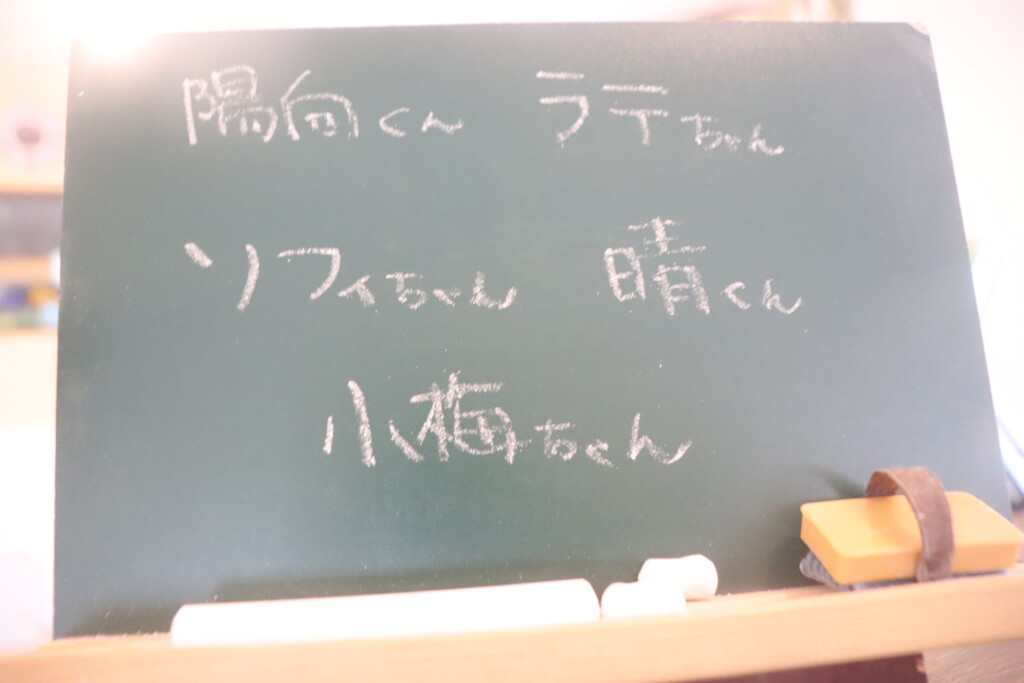 陽向くん ラテちゃん
ソフィちゃん 晴くん
小梅ちゃん